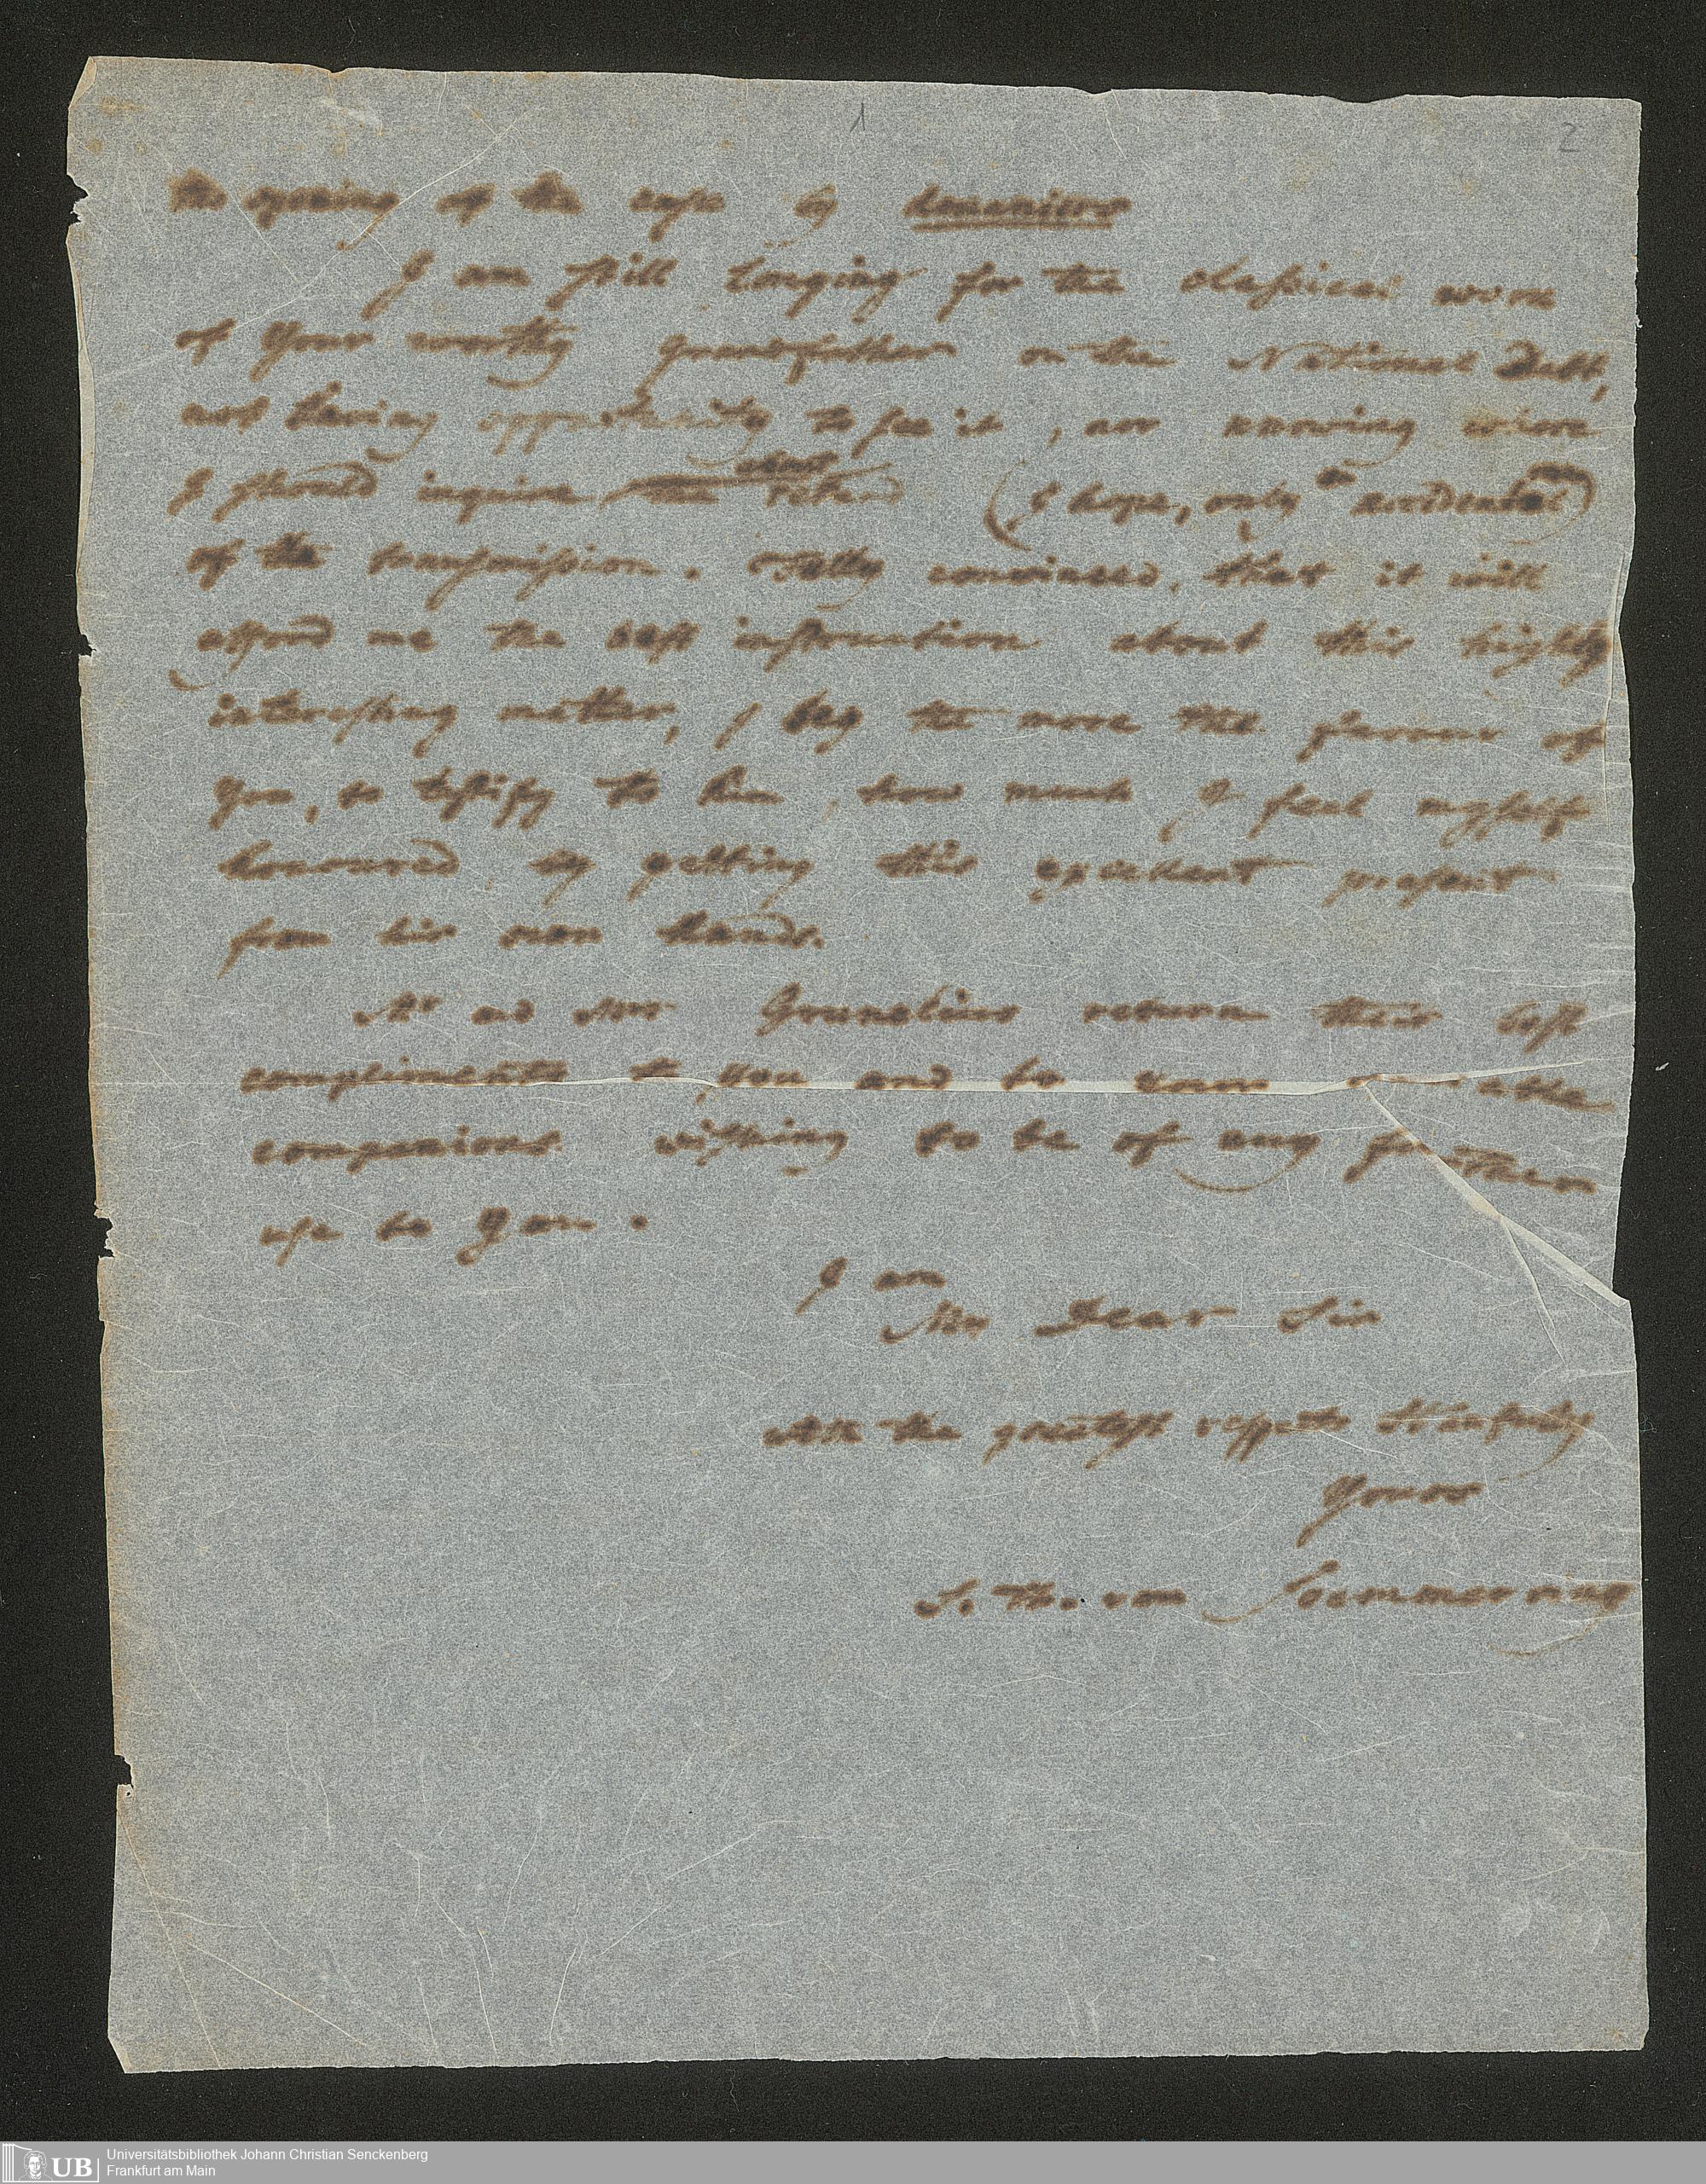 1
2
The opening of the case by
I am ſtill longing for the claſsical work
of Your worthy grandfather on the National Debt,
not having opportunity to ſee it, nor knowing where
I ſhould inquire about (I hope, only accidental)
of the tranſmiſsion. Fully convinced, that it will
afford me the beſt inſtruction about this highly
intereſting matter, I beg the more the favour of
You, to teſtify to him, how much I feel myſelf
honoured by getting this excellent preſent
from his own hands.
Mr and Mrs Grunelius return their beſt
compliments to you and to your
companions wiſhing to be of any further
uſe to You.
I am
My Dear Sir
with the greateſt reſpects
Yours
S. Th. von Soemmerring
UB
Universitätsbibliothek Johann Christian Senckenberg
Frankfurt am Main